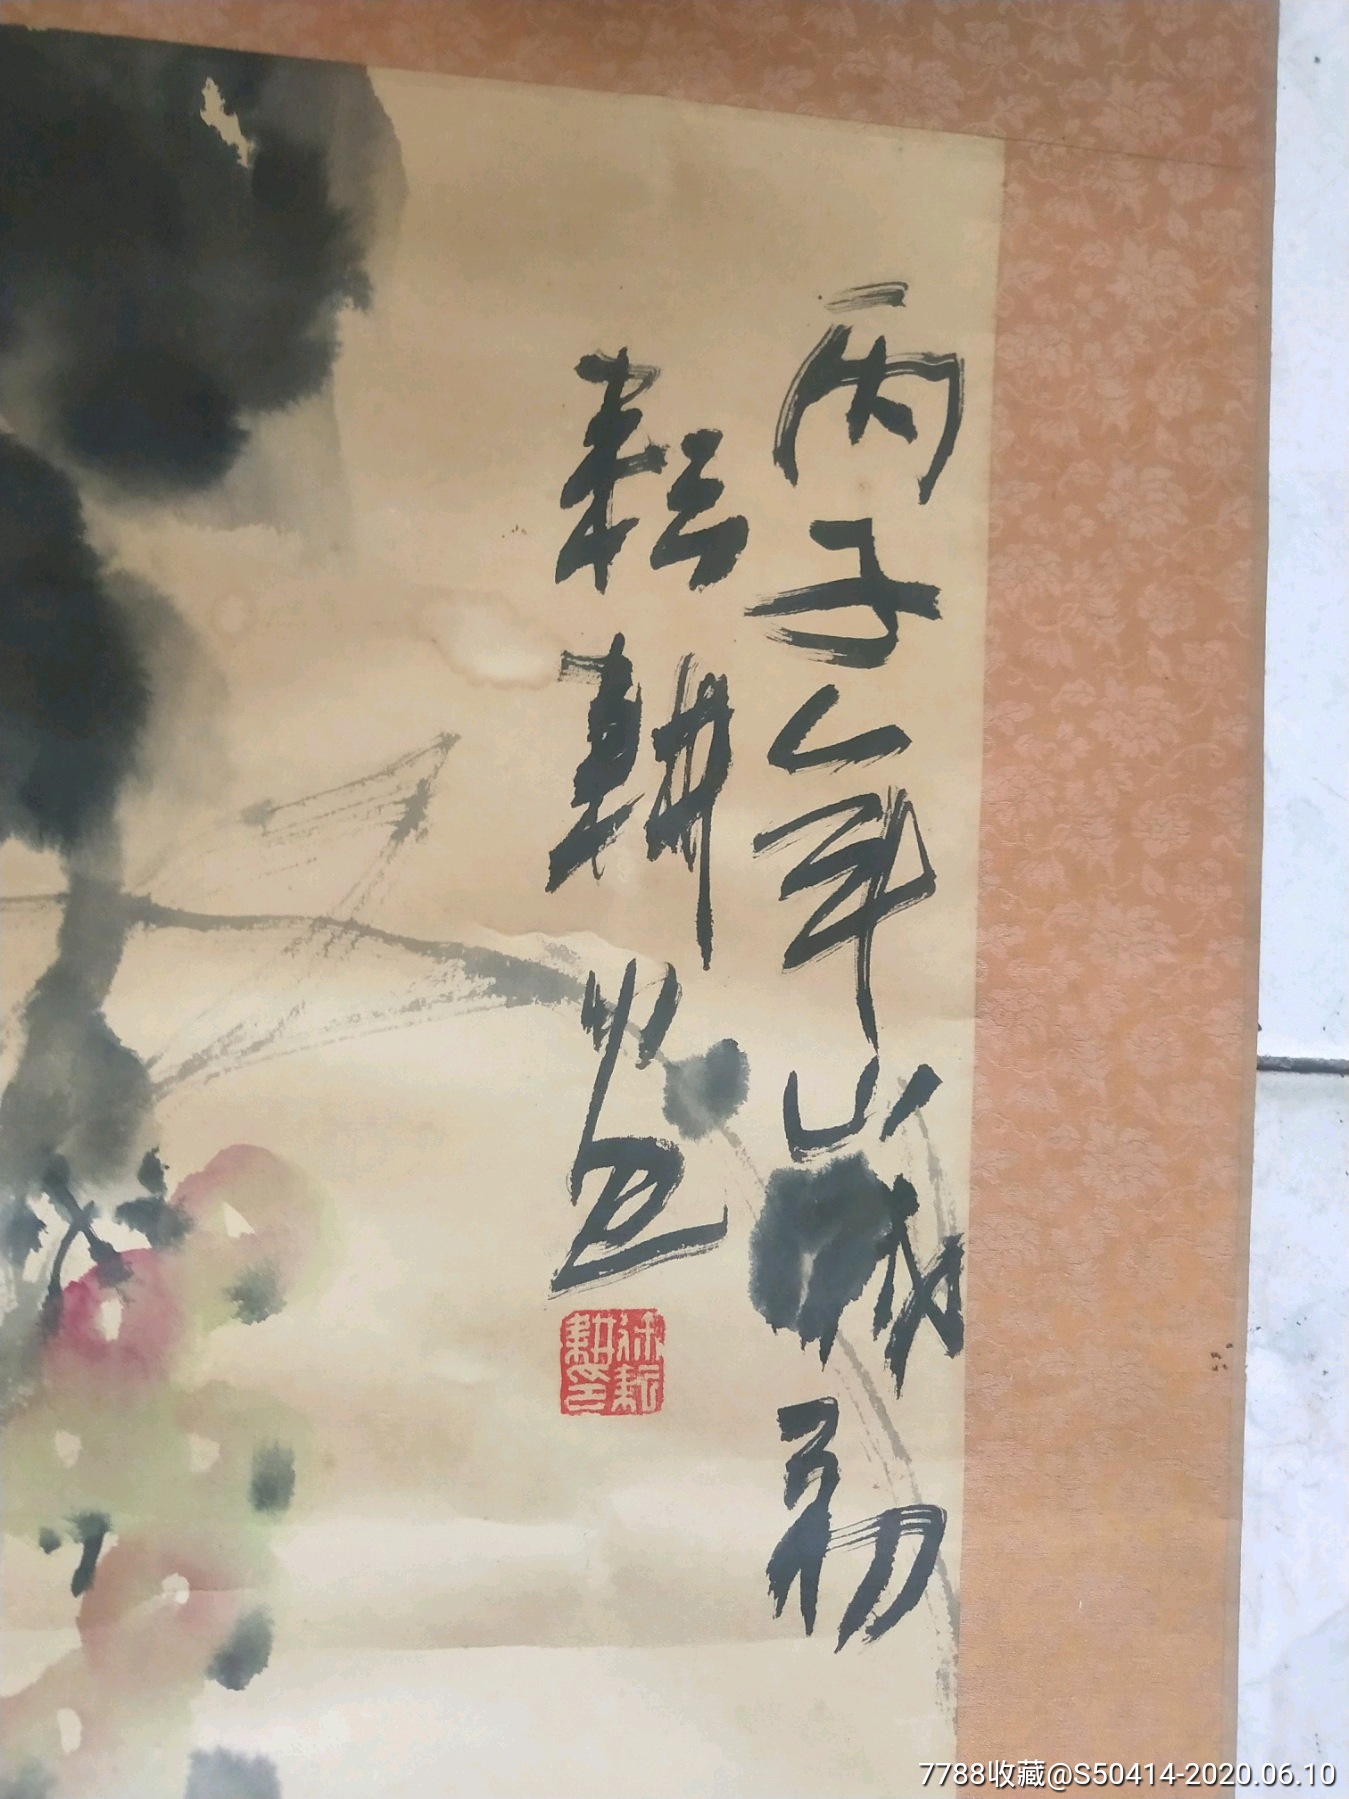 丙子年山城初
耘耕
徐耘
耕印
7788收藏@S50414-2020.06.10